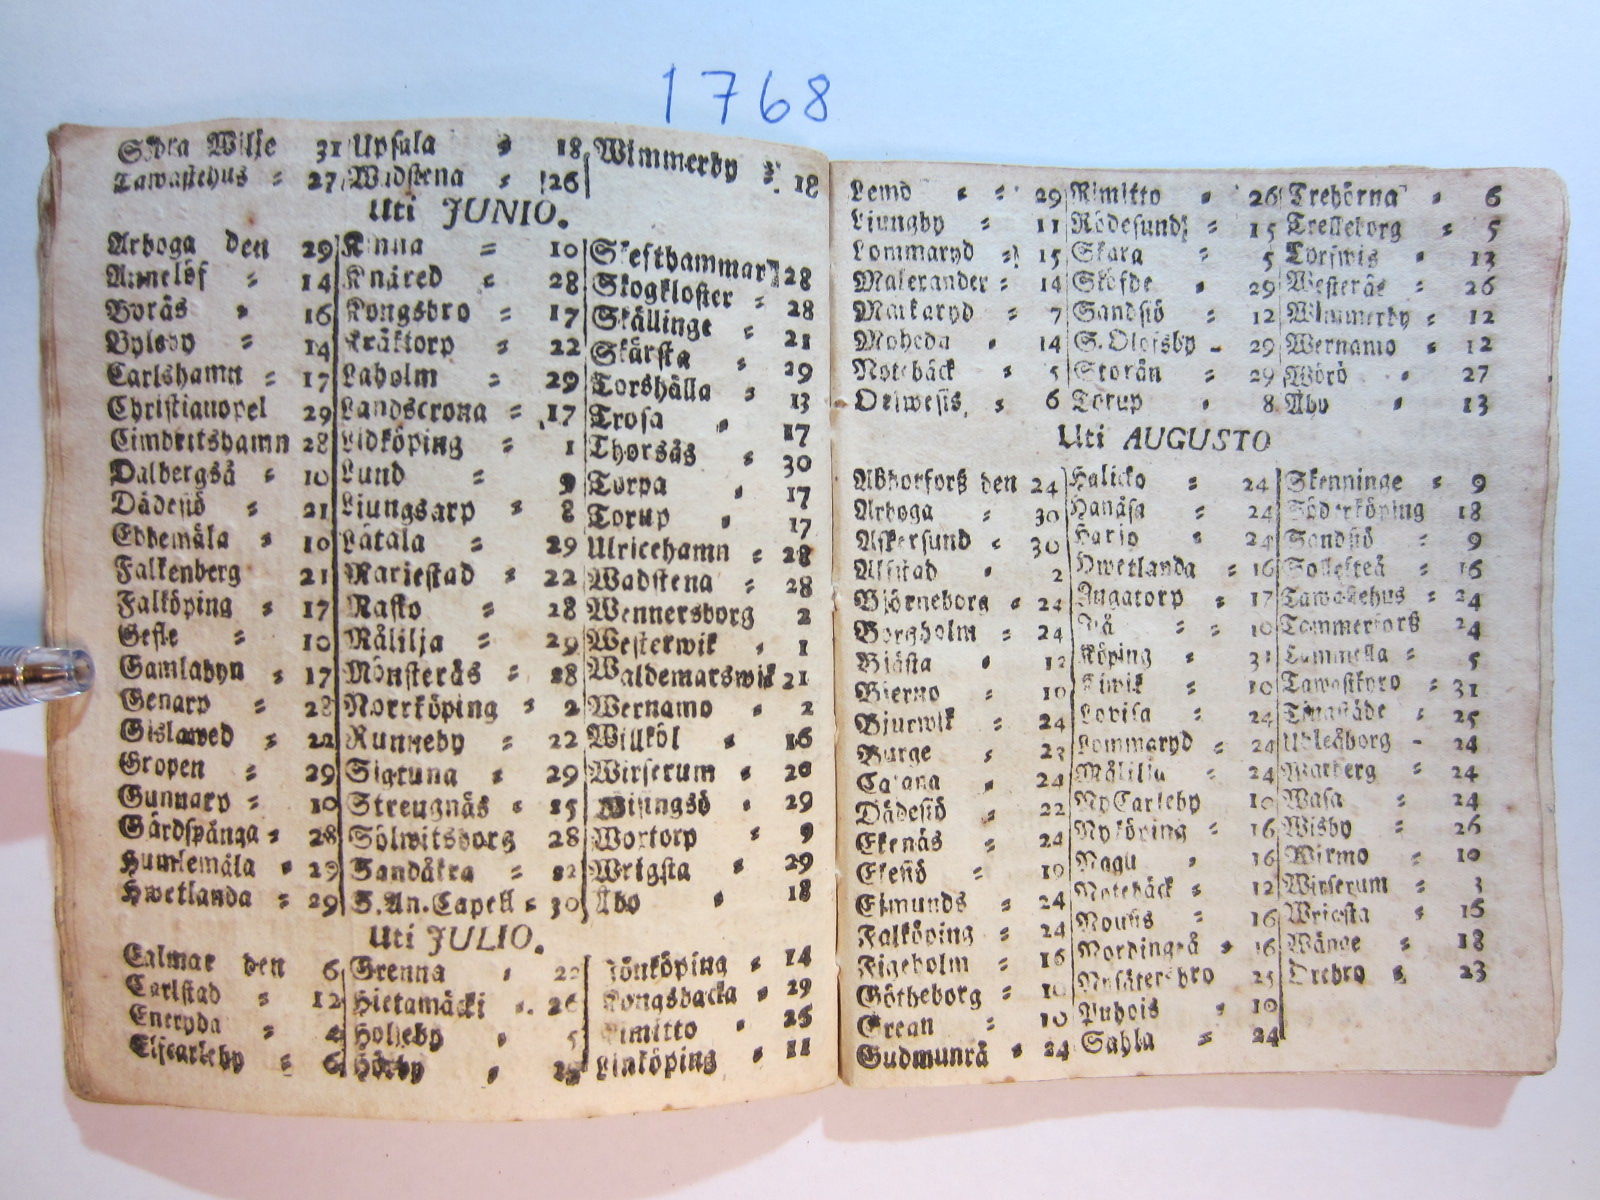 1768
Södra Wilje 31
Tawastehus = 27
Upsala = 18
Wadstena = 26
Wimmerby = 18
Uti JUNIO.
Arboga den 29
Annelöf = 14
Borås = 16
Byleby = 14
Carlshamn = 17
Christianopel 29
Cimbritshamn 28
Dalbergså = 10
Dädesiö = 21
Ebbemåla = 10
Falkenberg 21
Falköping = 17
Gefle = 10
Gamlabyn = 17
Genarp = 28
Gislawed = 22
Gropen = 29
Gunnarp = 10
Gårdspånga = 28
Humlemåla = 29
Hwetlanda = 29
Kinna = 10
Knäred = 28
Kongsbro = 17
Kräktorp = 22
Laholm = 29
Landscrona = 17
Lidköping = 1
Lund = 9
Ljungsarp = 8
Låtala = 29
Mariestad = 22
Nasko = 28
Målilja = 29
Mönsterås = 28
Norrköping = 2
Runneby = 22
Sigtuna = 29
Strengnäs = 15
Sölwitsborg 28
Sandåkra =
S. An. Capell = 30
Skefthammar 28
Skogkloster = 28
Skällinge = 21
Skärsta = 29
Torshälla = 13
Trosa = 17
Thorsås = 30
Torpa = 17
Torup = 17
Ulricehamn = 28
Wadstena = 28
Wennersborg 2
Westerwik = 1
Waldemarswik 21
Wernamo = 2
Willköl = 16
Wirserum = 20
Wisingsö = 29
Wortorp = 9
Wrigsta = 29
Åbo = 18
Uti JULIO.
Calmar den 6
Carlstad = 12
Eneryda = 4
Elfcarleby = 6
Grenna =
Hietamäcki = 26
Holjeby = 5
Hörby =
Jönköping = 14
Kongsbacka = 29
Kimitto = 25
Linköping = 11
Lemo = = 29
Ljungby = 11
Lommaryd = 15
Malexander = 14
Markaryd = 7
Moheda = 14
Notebäck = 5
Oriwesis = 6
Rimitto = 26
Rödesund = 15
Skara = 5
Sköfde = 29
Sandsiö = 12
S. Olofsby = 29
Storån = 29
Torup = 8
Trehörna = 6
Trelleborg = 5
Torfwis = 13
Westerås = 26
Wimmerby = 12
Wernamo = 12
Wörö = 27
Åby = 13
Uti AUGUSTO
Abborforß den 24
Arboga = 30
Askersund = 30
Alfstad = 2
Björneborg = 24
Borgholm = 24
Bjästa = 12
Bierno = 10
Bjurwik = 24
Burge = 23
Cajana = 24
Dädesiö = 22
Ekenäs = 24
Ekesiö = 19
Esmunds = 24
Falköping = 24
Figeholm = 16
Götheborg = 10
Grean = 10
Gudmunrå = 24
Halicko = 24
Hanåsa = 24
Harjo = 24
Hwetlanda = 16
Ingatorp = 17
= = 10
Köping = 31
Kiwik = 10
Lovisa = 24
Lommaryd = 24
Målilla = 24
Ny Carleby 10
Nyköping = 16
Nagu = 16
Notebäck = 12
Nousis = 16
Nordingrå = 16
Nysätersbro 25
Puhois = 10
Sahla = 24
Skenninge = 9
Söderköping 18
Sandsiö = 9
Sollefteå = 16
Tawastehus = 24
Tammerforß 24
Lammella = 5
Tawastkyro = 31
Tingstäde = 25
Uhleåborg = 24
Warberg = 24
Wasa = 24
Wisby = 26
Wirmo = 10
Wirserum = 3
Wriesta = 16
Wånge = 18
Örebro = 23